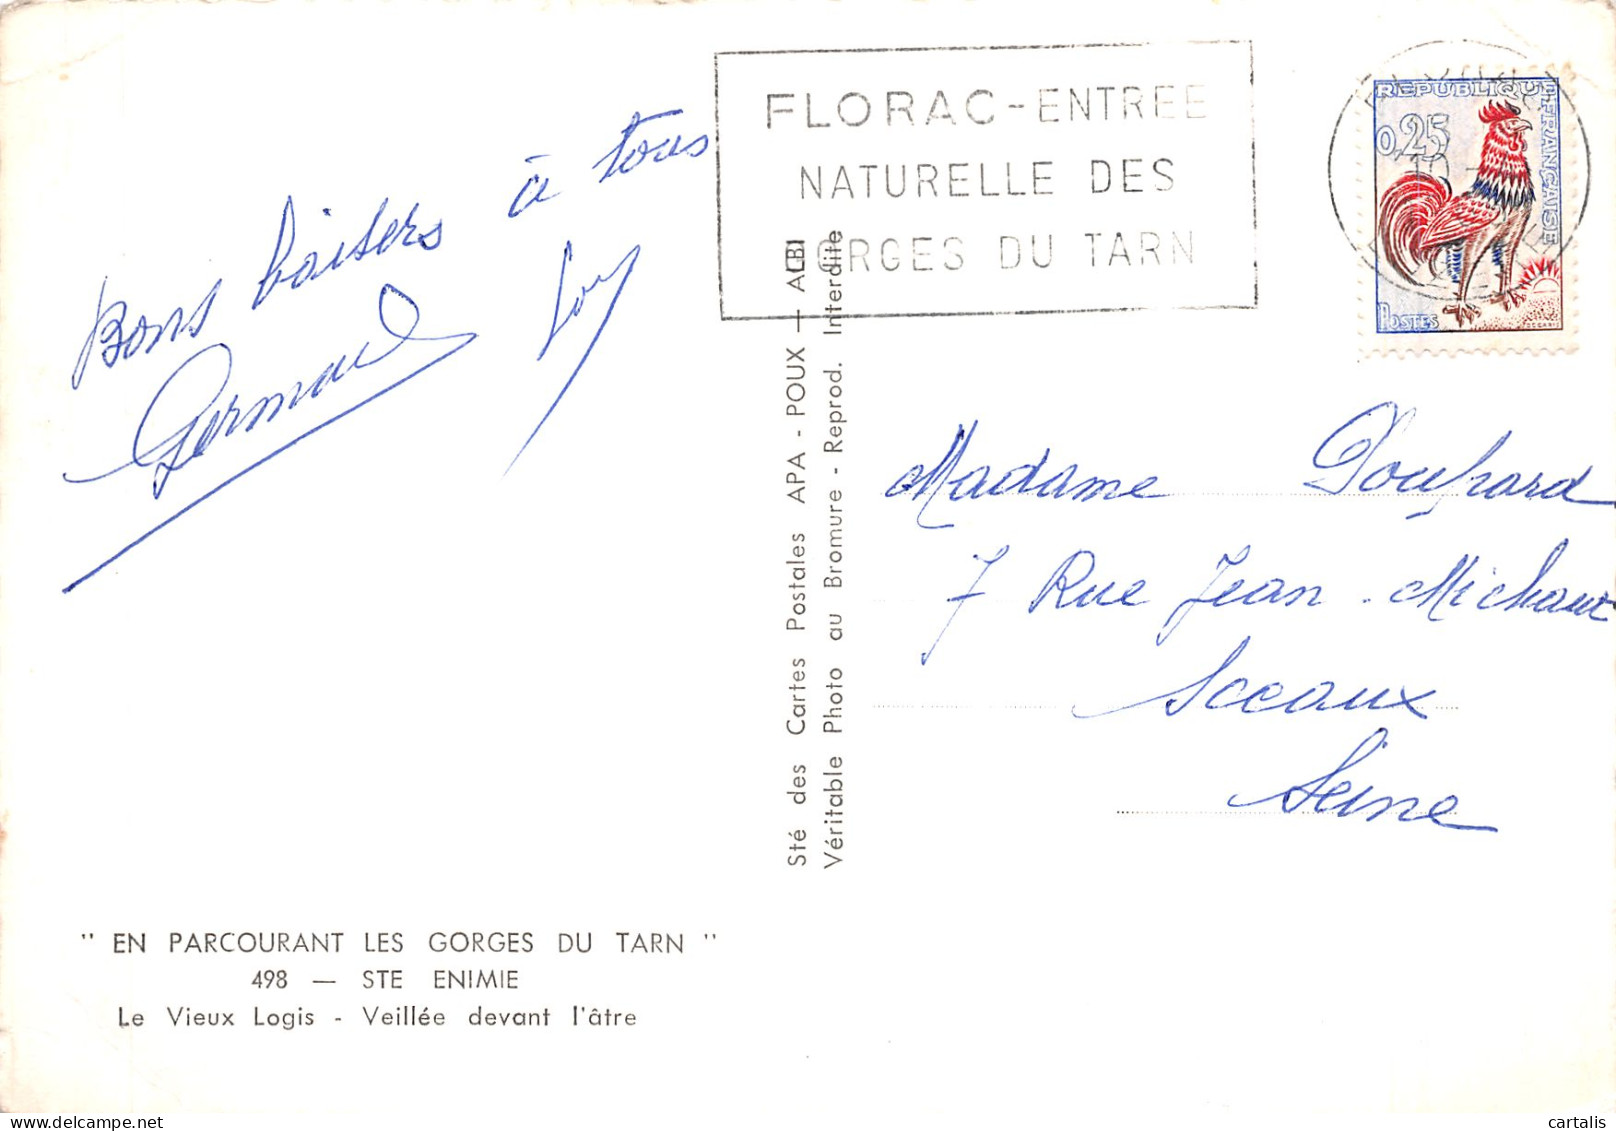 Bons baisers à tous
FLORAC - ENTREE
NATURELLE DES
GORGES DU TARN
REPUBLIQUE FRANÇAISE
0,25
POSTES
DECARIS
Sté des Cartes Postales APA - POUX — ALBI
Véritable Photo au Bromure - Reprod. Interdite
Madame Poupard
7 Rue Jean-Michaut
Sceaux
Seine
" EN PARCOURANT LES GORGES DU TARN "
498 — STE ENIMIE
Le Vieux Logis - Veillée devant l'âtre
cartalis